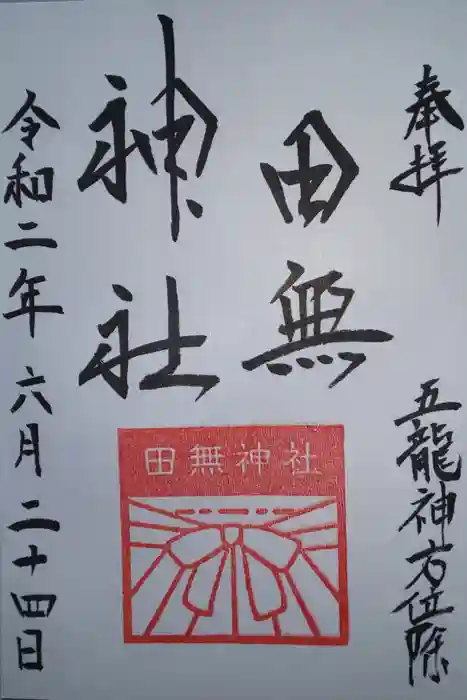 奉拝
五龍神方位除
田無
神社
田無神社
令和二年六月二十四日